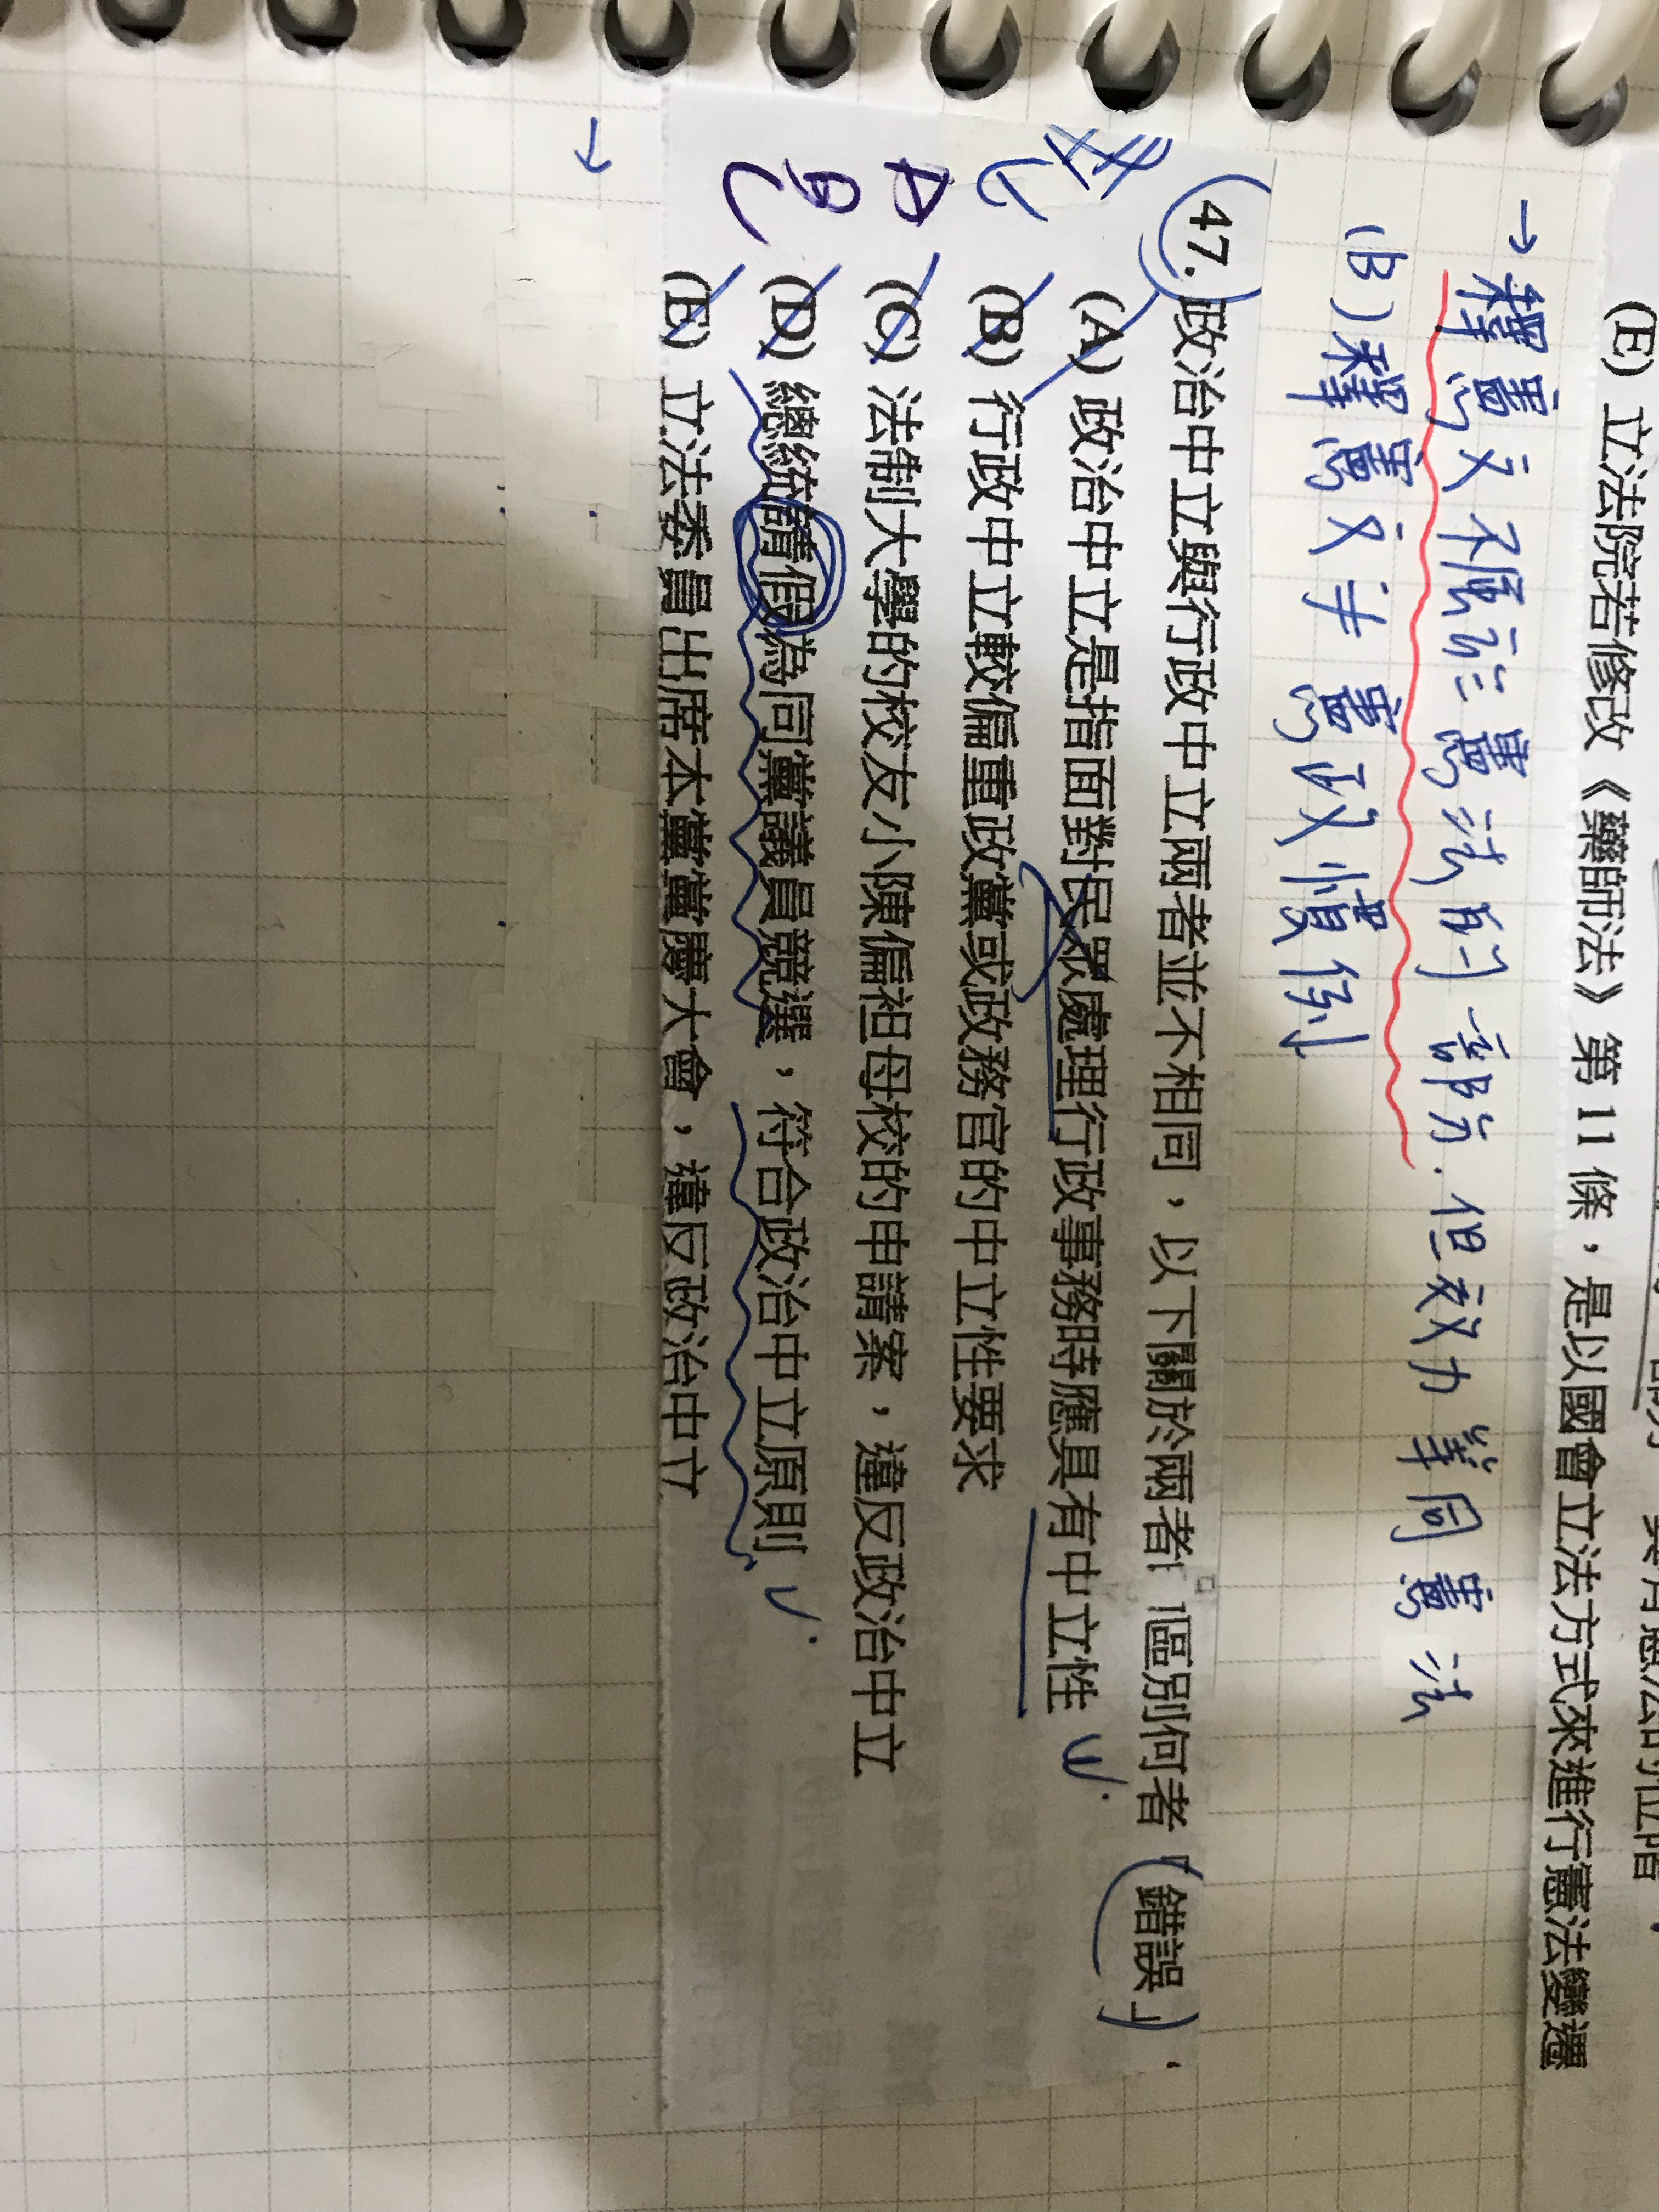 (E) 立法院若修改《藥師法》第 11 條，是以國會立法方式來進行憲法變遷
→ 釋憲文不屬於憲法的部分，但效力等同憲法
(B) 釋憲文≠憲政慣例
47. 政治中立與行政中立兩者並不相同，以下關於兩者區別何者「錯誤」
(A) 政治中立是指面對民眾處理行政事務時應具有中立性
(B) 行政中立較偏重政黨或政務官的中立性要求
(C) 法制大學的校友小陳偏袒母校的申請案，違反政治中立
(D) 總統請假為同黨議員競選，符合政治中立原則
(E) 立法委員出席本黨黨慶大會，違反政治中立
→